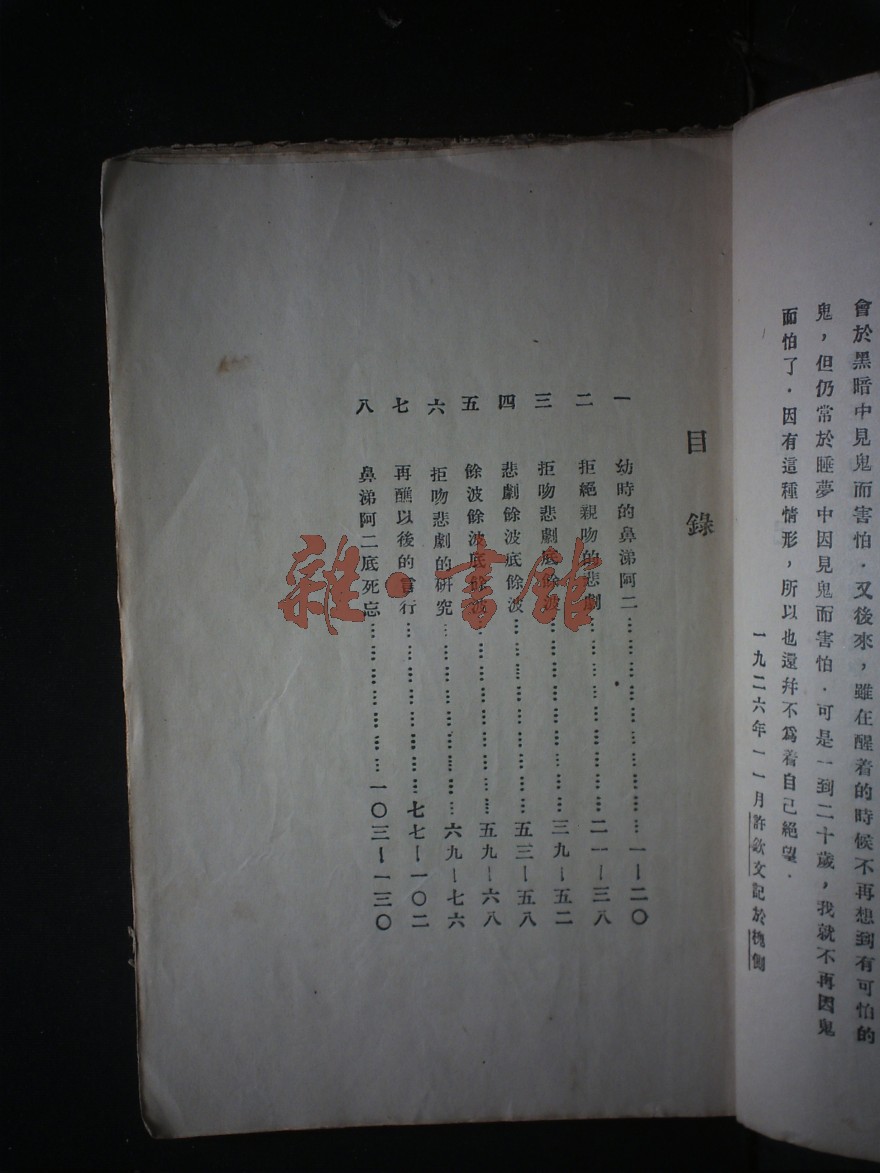 會於黑暗中見鬼而害怕．又後來，雖在醒着的時候不再想到有可怕的
鬼，但仍常於睡夢中因見鬼而害怕．可是一到二十歲，我就不再因鬼
而怕了．因有這種情形，所以也還幷不爲着自己絕望．
一九二六年一一月許欽文記於槐
目錄
一 幼時的鼻涕阿二……………………一—二〇
二 拒絕親吻的悲劇……………………二一—三八
三 拒吻悲劇底餘波……………………三九—五二
四 悲劇餘波底餘波……………………五三—五八
五 餘波餘波底餘波……………………五九—六八
六 拒吻悲劇的研究……………………六九—七六
七 再醮以後的言行……………………七七—一〇二
八 鼻涕阿二底死忘……………………一〇三—一三〇
雜·書館